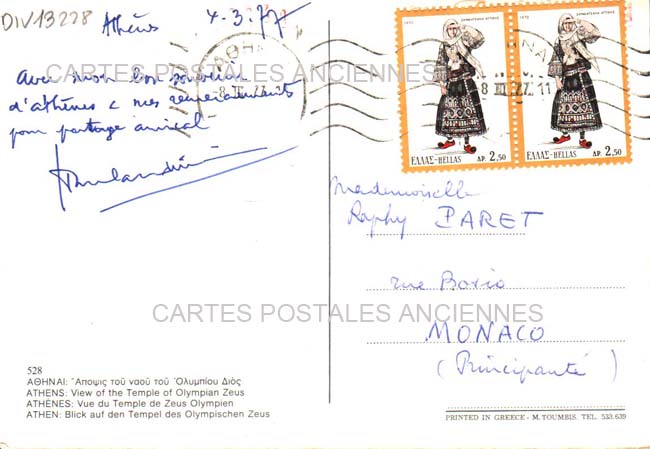 DIV13228
Athènes 4.3.77
Avec mon bon souvenir
d'athènes & mes remerciements
pour partage amical
CARTES POSTALES ANCIENNES
ΑΘΗΝΑΙ
8 III 77 11
1972
ΕΛΛΑΣ-HELLAS ΔΡ. 2,50
1972
ΕΛΛΑΣ-HELLAS ΔΡ. 2,50
Mademoiselle
Raphy PARET
rue Bosio
CARTES POSTALES ANCIENNES
MONACO
(Principauté)
528
ΑΘΗΝΑΙ: Ἄποψις τοῦ ναοῦ τοῦ Ὀλυμπίου Διός
ATHENS: View of the Temple of Olympian Zeus
ATHÈNES: Vue du Temple de Zeus Olympien
ATHEN: Blick auf den Tempel des Olympischen Zeus
PRINTED IN GREECE - M. TOUMBIS. TEL. 533.639